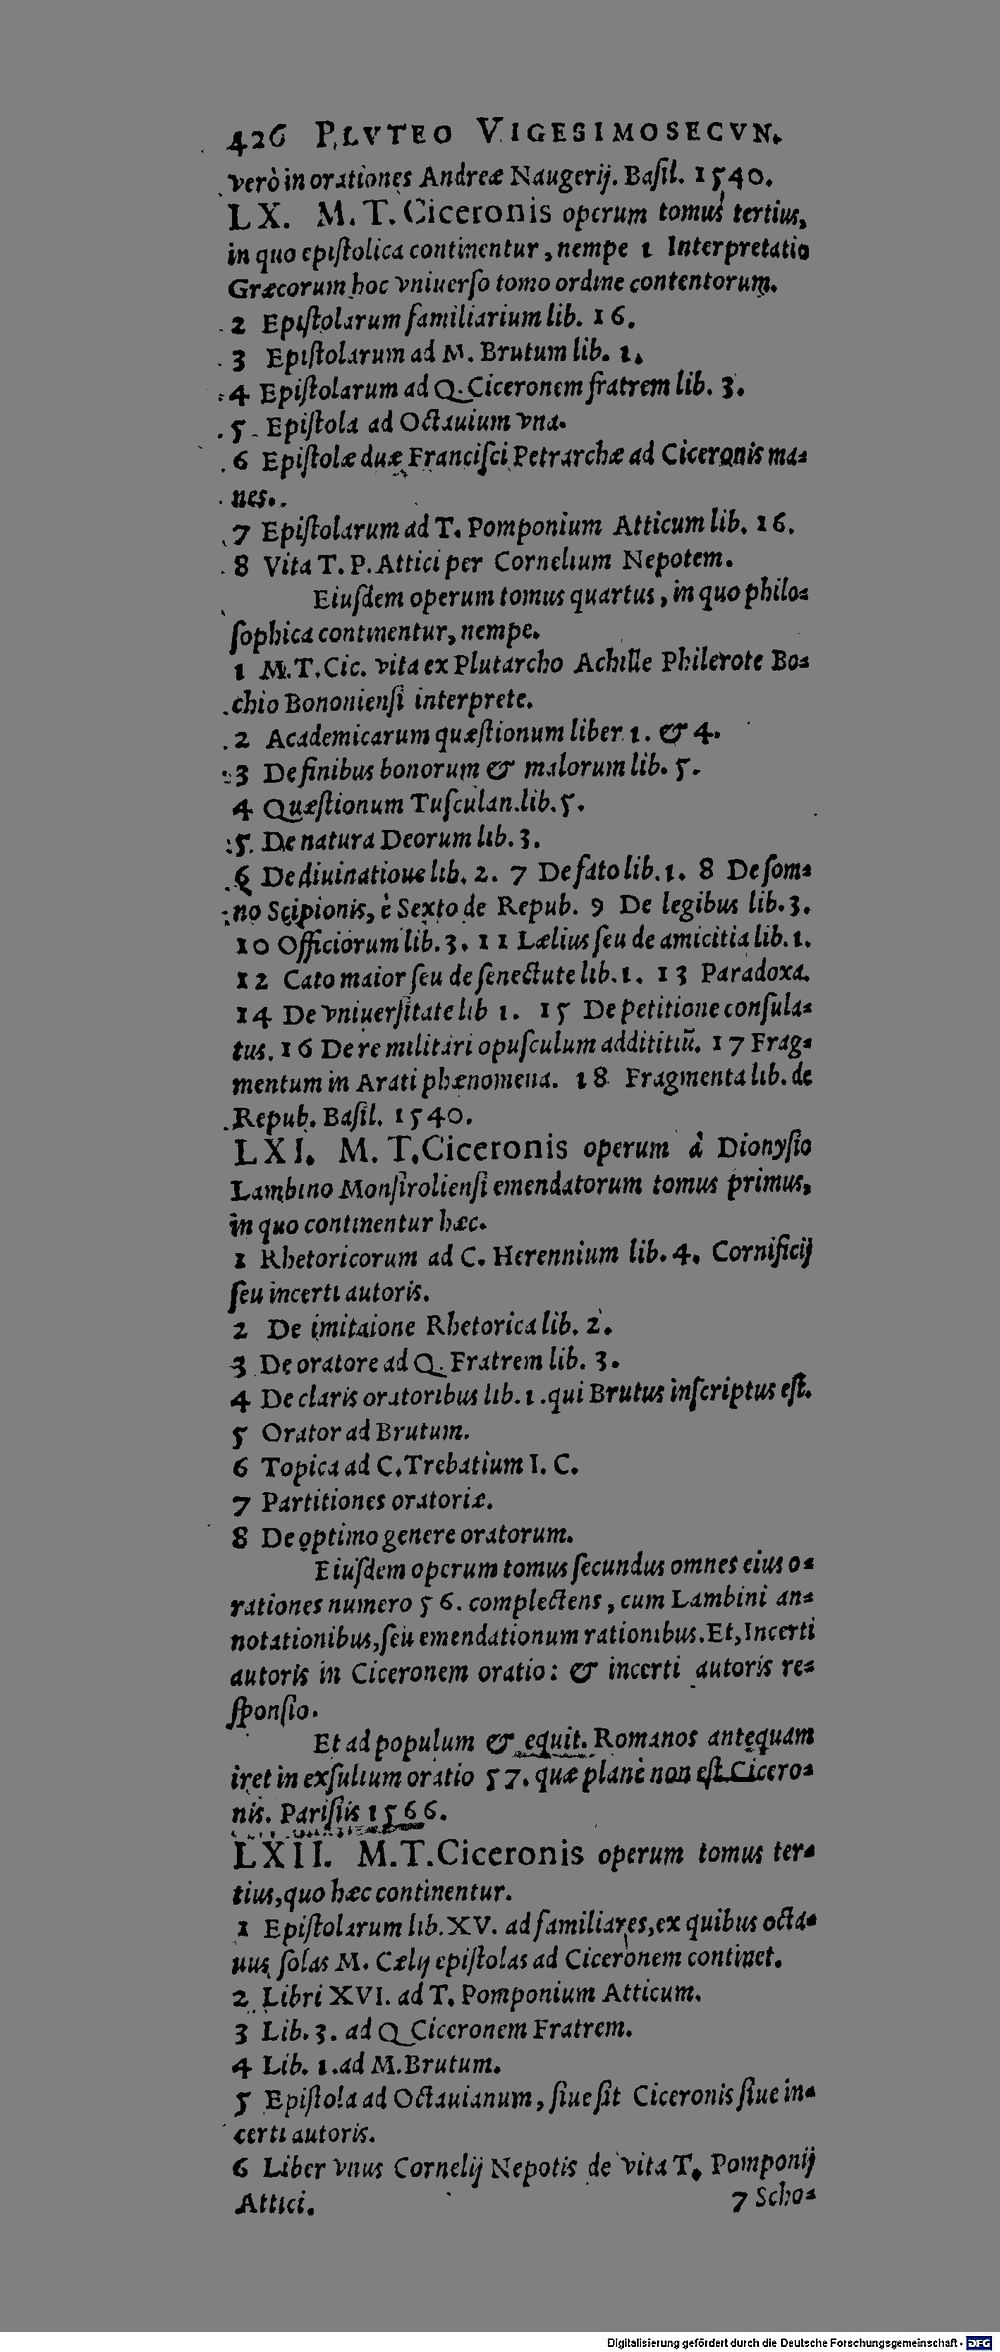 426 PLVTEO VIGESIMOSECVN.
verò in orationes Andreæ Naugerij. Basil. 1540.
LX. M. T. Ciceronis operum tomus tertius,
in quo epistolica continentur, nempe 1 Interpretatio
Græcorum hoc vniuerso tomo ordine contentorum.
2 Epistolarum familiarium lib. 16.
3 Epistolarum ad M. Brutum lib. 1.
4 Epistolarum ad Q. Ciceronem fratrem lib. 3.
5 Epistola ad Octauium vna.
6 Epistolæ duæ Francisci Petrarchæ ad Ciceronis ma-
nes.
7 Epistolarum ad T. Pomponium Atticum lib. 16.
8 Vita T. P. Attici per Cornelium Nepotem.
Eiusdem operum tomus quartus, in quo philo-
sophica continentur, nempe.
1 M. T. Cic. vita ex Plutarcho Achille Philerote Bo-
chio Bononiensi interprete.
2 Academicarum quæstionum liber 1. & 4.
3 De finibus bonorum & malorum lib. 5.
4 Quæstionum Tusculan. lib. 5.
5. De natura Deorum lib. 3.
6 De diuinatioue lib. 2. 7 De fato lib. 1. 8 De som-
no Scipionis, è Sexto de Repub. 9 De legibus lib. 3.
10 Officiorum lib. 3. 11 Lælius seu de amicitia lib. 1.
12 Cato maior seu de senectute lib. 1. 13 Paradoxa.
14 De vniuersitate lib 1. 15 De petitione consula-
tus. 16 De re militari opusculum addititiũ. 17 Frag-
mentum in Arati phænomena. 18 Fragmenta lib. de
Repub. Basil. 1540.
LXI. M. T. Ciceronis operum à Dionysio
Lambino Monsiroliensi emendatorum tomus primus,
in quo continentur hæc.
1 Rhetoricorum ad C. Herennium lib. 4. Cornificij
seu incerti autoris.
2 De imitaione Rhetorica lib. 2.
3 De oratore ad Q. Fratrem lib. 3.
4 De claris oratoribus lib. 1. qui Brutus inscriptus est.
5 Orator ad Brutum.
6 Topica ad C. Trebatium I. C.
7 Partitiones oratoriæ.
8 De optimo genere oratorum.
Eiusdem operum tomus secundus omnes eius o-
rationes numero 56. complectens, cum Lambini an-
notationibus, seu emendationum rationibus. Et, Incerti
autoris in Ciceronem oratio: & incerti autoris re-
sponsio.
Et ad populum & equit. Romanos antequam
iret in exsulium oratio 57. quæ planè non est Cicero-
nis. Parisiis 1566.
LXII. M. T. Ciceronis operum tomus ter-
tius, quo hæc continentur.
1 Epistolarum lib. XV. ad familiares, ex quibus octa-
uus solas M. Cælij epistolas ad Ciceronem continet.
2 Libri XVI. ad T. Pomponium Atticum.
3 Lib. 3. ad Q Ciceronem Fratrem.
4 Lib. 1. ad M. Brutum.
5 Epistola ad Octauianum, siue sit Ciceronis siue in-
certi autoris.
6 Liber vnus Cornelij Nepotis de vita T. Pomponij
Attici. 7 Scho-
Digitalisierung gefördert durch die Deutsche Forschungsgemeinschaft - DFG